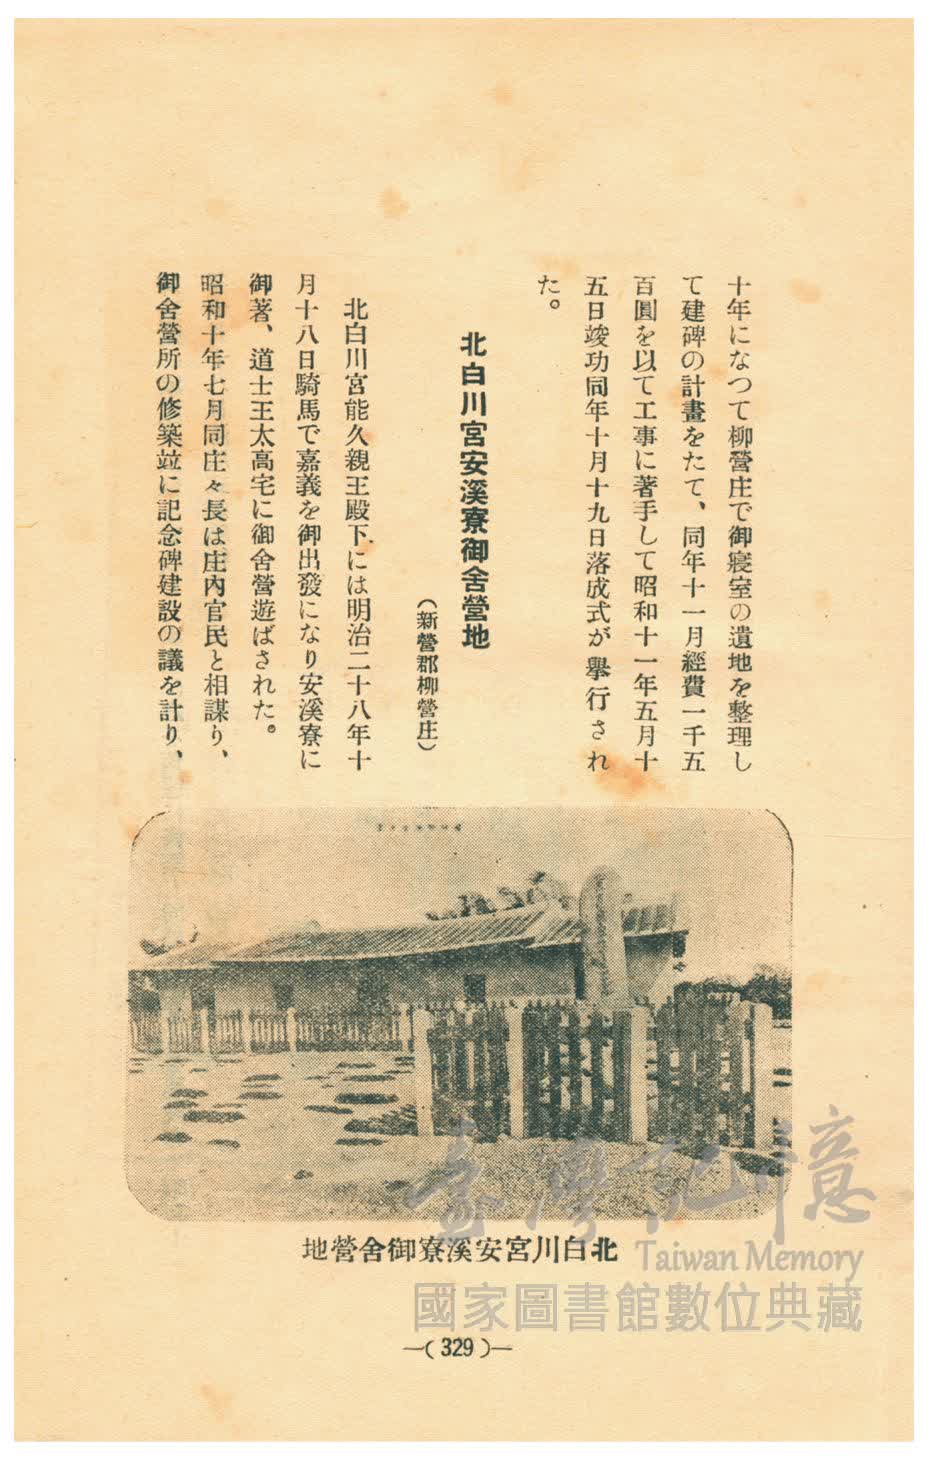 十年になつて柳營庄で御寢室の遺地を整理し
て建碑の計畫をたて、同年十一月經費一千五
百圓を以て工事に著手して昭和十一年五月十
五日竣功同年十月十九日落成式が擧行され
た。
北白川宮安溪寮御舍營地
（新營郡柳營庄）
北白川宮能久親王殿下には明治二十八年十
月十八日騎馬で嘉義を御出發になり安溪寮に
御著、道士王太高宅に御舍營遊ばされた。
昭和十年七月同庄々長は庄內官民と相謀り、
御舍營所の修築竝に記念碑建設の議を計り、
地營舍御寮溪安宮川白北
臺灣記憶
Taiwan Memory
國家圖書館數位典藏
—( 329 )—